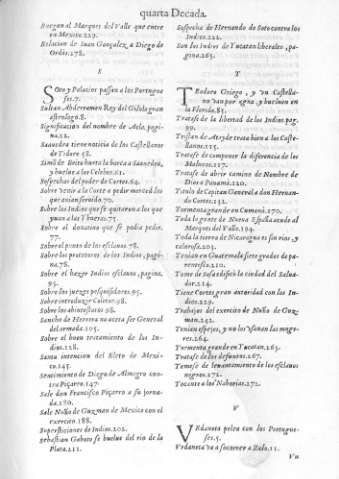 quarta Decada.
Ruegan al Marques del Valle que entre
en Mexico.229.
Relacion de Iuan Gonçalez, a Diego de
Ordàs.278.
S
Soto y Palacios passan a los Portugue
ses.7.
Sultan Abderramen Rey del Gidolo gran
astrologo.8.
Significacion del nombre de Aclo, pagin
na.22.
Saavedra tiene noticia de los Castellanos
de Tidore 58.
Simõ de Brito hurta la barca a Saavedra,
y buelue a los Celebes.61.
Sospechas del poder de Cortes.64.
Sobre venir a la Corte a pedir merced los
que auian seruido.70.
Sobre los Indios que se quitaron a los que
yuan a las
Sobre al donatiuo que se podia pedir.
77.
Sobre el precio de los esclauos.78.
Sobre los protetores de los Indios, pagi-
na.78.
Sobre el hazer Indios esclauos, pagina.
95.
Sobre los jueces pesquisidores.95.
Sobre introduzir Coletos.98.
Sobre los abintestatos.98.
Sancho de Herrera no aceta ser General
del armada.105.
Sobre el buen tratamiento de los In-
dios.128.
Santa intencion del Eleto de Mexi-
co.145.
Sentimiento de Diego de Almagro con-
tra Piçarro.147.
Sale don Francisco Piçarro a su jorna-
da.180.
Sale Nuño de Guzman de Mexico con el
exercito.188.
Supersticiones de Indios.202.
Sebastian Gaboto se buelue del rio de la
Plata.211.
Sospecha de Hernando de Soto contra los
Indios.221.
Son los Indios de Yucatan liberales, pa-
gina.265.
T
Teodoro Griego, y vn Castella-
no van por agua, y bueluen en
la Florida.85.
Tratase de la libertad de los Indios.pag.
99.
Tristan de Atayde trata bien a los Caste-
llanos.125.
Tratase de componer la diferencia de los
Malucos.117.
Tratase de abrir camino de Nombre de
Dios a Panamà.120.
Titulo de Capitan General a don Hernan-
do Cortes.132.
Tormenta grande en Cumanà.170.
Toda la gente de Nueua España acude al
Marques del Valle.194.
Toda la tierra de Nicaragua es sin rios, y
calurosa.205.
Tenian en Guatemala siete grados de pa-
rentesco.210.
Tome de Sosa edificò la ciudad del Salua-
dor.214.
Tiene Cortes gran autoridad con los In-
dios.229.
Trabajos del exercito de Nuño de Guz-
man.242.
Tenian espejos, y no los vsauan las muge-
res.264.
Tormenta grande en Yucatan.265.
Tratase de los defuntos.267.
Temese de leuantamiento de los esclauos
negros.272.
Tocante a los Naborias.272.
V
Vrdaneta pelea con los Portugue-
ses.5.
Vrdaneta va a socorrer a Zalo.11.
Vn